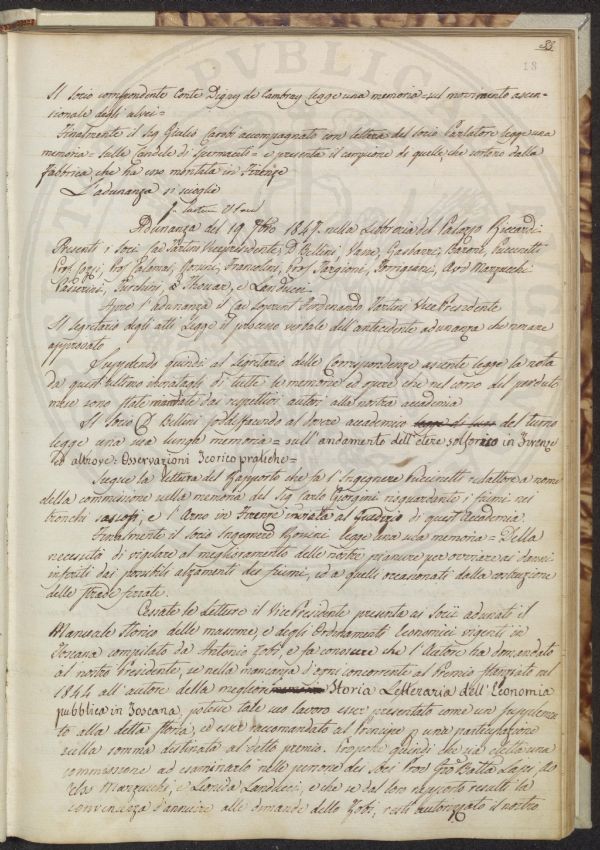 33
18
Il Socio corrispondente Conte Digny de Cambray legge una memoria = sul movimento ascen-
sionale degli alvei =
Finalmente il Sig Giulio Carobi accompagnato con lettera del Socio Parlatore legge una
memoria = sulle Candele di Spermaceti = e presenta il campione di quelle, che sortono dalla
Fabbrica, che ha esso montata in Firenze
L'adunanza si sciolse
Adunanza del 19 9bre 1847. nella Libreria del Palazzo Riccardi
Presenti i Soci Cav Tartini Vicepresidente, D Bellini, Vanni, Gasbarri, Baroni, Puccinetti
Prof Cozzi, Prof Calamai, Gonini, Franceschi, Prof Targioni, Tonigiani, Avv Marzucchi
Passerini, Turchini, Thouar, e Landucci.
Apre l'adunanza il Cav Soprint Ferdinando Tartini Vice Presidente
Il Segretario degli atti legge il processo verbale dell'antecedente adunanza che rimane
approvato
Supplendo quindi al Segretario delle Corrispondenze assente legge la nota
da quest'ultimo inviatagli di tutte le memorie ed opere che nel corso del perduto
mese sono state mandate dai rispettivi autori alla nostra accademia
Il Socio D Bellini soddisfacendo al dovere accademico del turno
legge una sua lunga memoria = sull'andamento dell'etere solforico in Firenze
ed altrove: Osservazioni Teorico pratiche =
Segue la lettura del Rapporto che fa l'Ingegnere Puccinetti relatore a nome
della commissione sulla memoria del Sig Carlo Giorgini risguardante i fiumi nei
tronchi sassosi, e l'Arno in Firenze inviata al Giudizio di quest'Accademia.
Finalmente il socio Ingegnere Gonini legge una sua memoria = Della
necessità di vigilare al miglioramento delle nostre pianure per ovviare ai danni
inferiti dai possibili alzamenti dei fiumi, ed a quelli occasionati dalla costruzione
delle strade ferrate.
Cessate le letture il Vice Presidente presenta ai Socii adunati il
Manuale Storico delle massime, e degli Ordinamenti Economici vigenti in
Toscana compilato da Antonio Zobi, e fa conoscere che l'Autore ha domandato
al nostro Presidente, se nella mancanza d'ogni concorrente al Premio stanziato nel
1844 all'autore della migliore Storia Letteraria dell'Economia
pubblica in Toscana, potesse tale suo lavoro esser presentato come un supplemen
to alla detta storia, ed esser raccomandato al Principe p una partecipazione
sulla somma destinata al detto premio. Propone quindi che sia eletta una
commissione ad esaminarlo nelle persone dei Soci Prof Gio Batta Lapi
Marzucchi, e Leonida Landucci, e che se dal loro rapporto resulti la
convenienza d'annuire alle domande dello Zobi, resti autorizzato il nostro